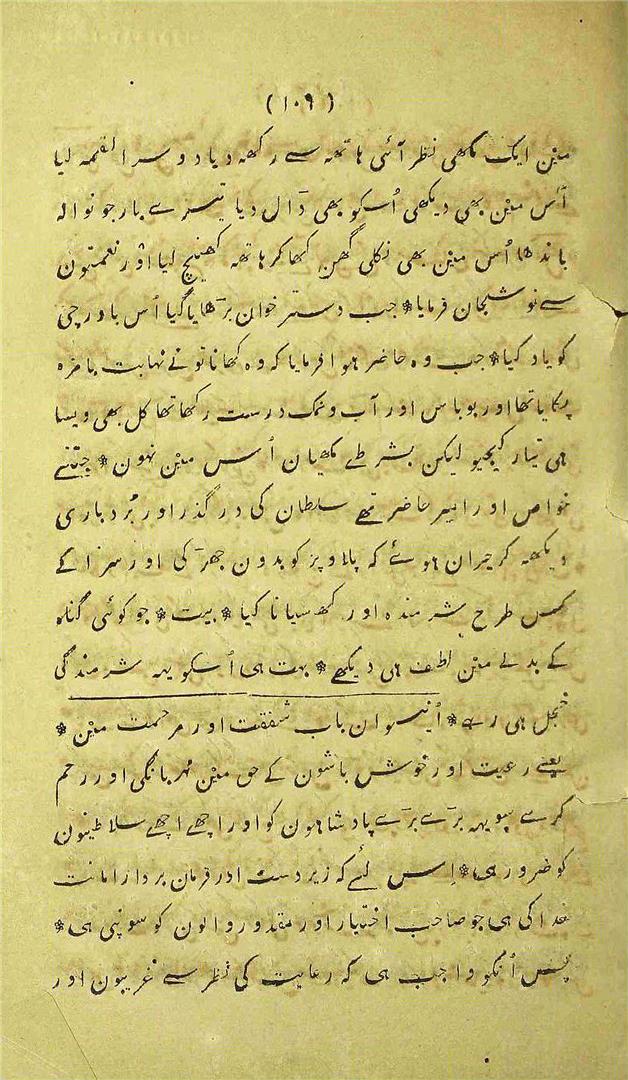 (۱۰۹)
میں ایک مکھی نظر آئی ہاتھہ سے رکھہ دیا دوسرا لقمہ لیا
اُس میں بھی دیکھی اُسکو بھی ڈال دیا تیسرے بار جو نوالہ
باندھا اُس میں بھی نکلی گھن کھا کر ہاتھہ کھینچ لیا اور نعمتون
سے نوشجان فرمایا * جب دستر خوان بڑھایا گیا اُس باورچی
کو یاد کیا * جب وہ حاضر ہوا فرمایا کہ وہ کھانا تو نے نہایت بامزہ
پکایا تھا اور بو باس اور آب و نمک درست رکھا تھا کل بھی ویسا
ہی تیار کیجیو لیکن بشرطے مکھیان اُس میں نہون * جتنے
خواص اور امیر حاضر تھے سلطان کی درگذر اور بُردباری
دیکھہ کر حیران ہوئے کہ پلاوپز کو بدون جھڑکی اور سزا کے
کس طرح شرمندہ اور کھسیانا کیا * بیت * جو کوئی گناہ
کے بدلے میں لطف ہی دیکھے * بہت ہی اُسکو یہہ شرمندگی
خجل ہی رہے * اُنیسوان باب شفقت اور مرحمت میں *
یعنے رعیت اور خوش باشون کے حق میں مہربانگی اور رحم
کرے سو یہہ بڑے بڑے پادشاہون کو اور اچھے اچھے سلاطینون
کو ضرور ہی * اِس لئے کہ زیردست اور فرمان بردار امانت
خدا کی ہی جو صاحب اختیار اور مقدور والون کو سونپی ہی *
پس اُنکو واجب ہی کہ رعایت کی نظر سے غریبون اور